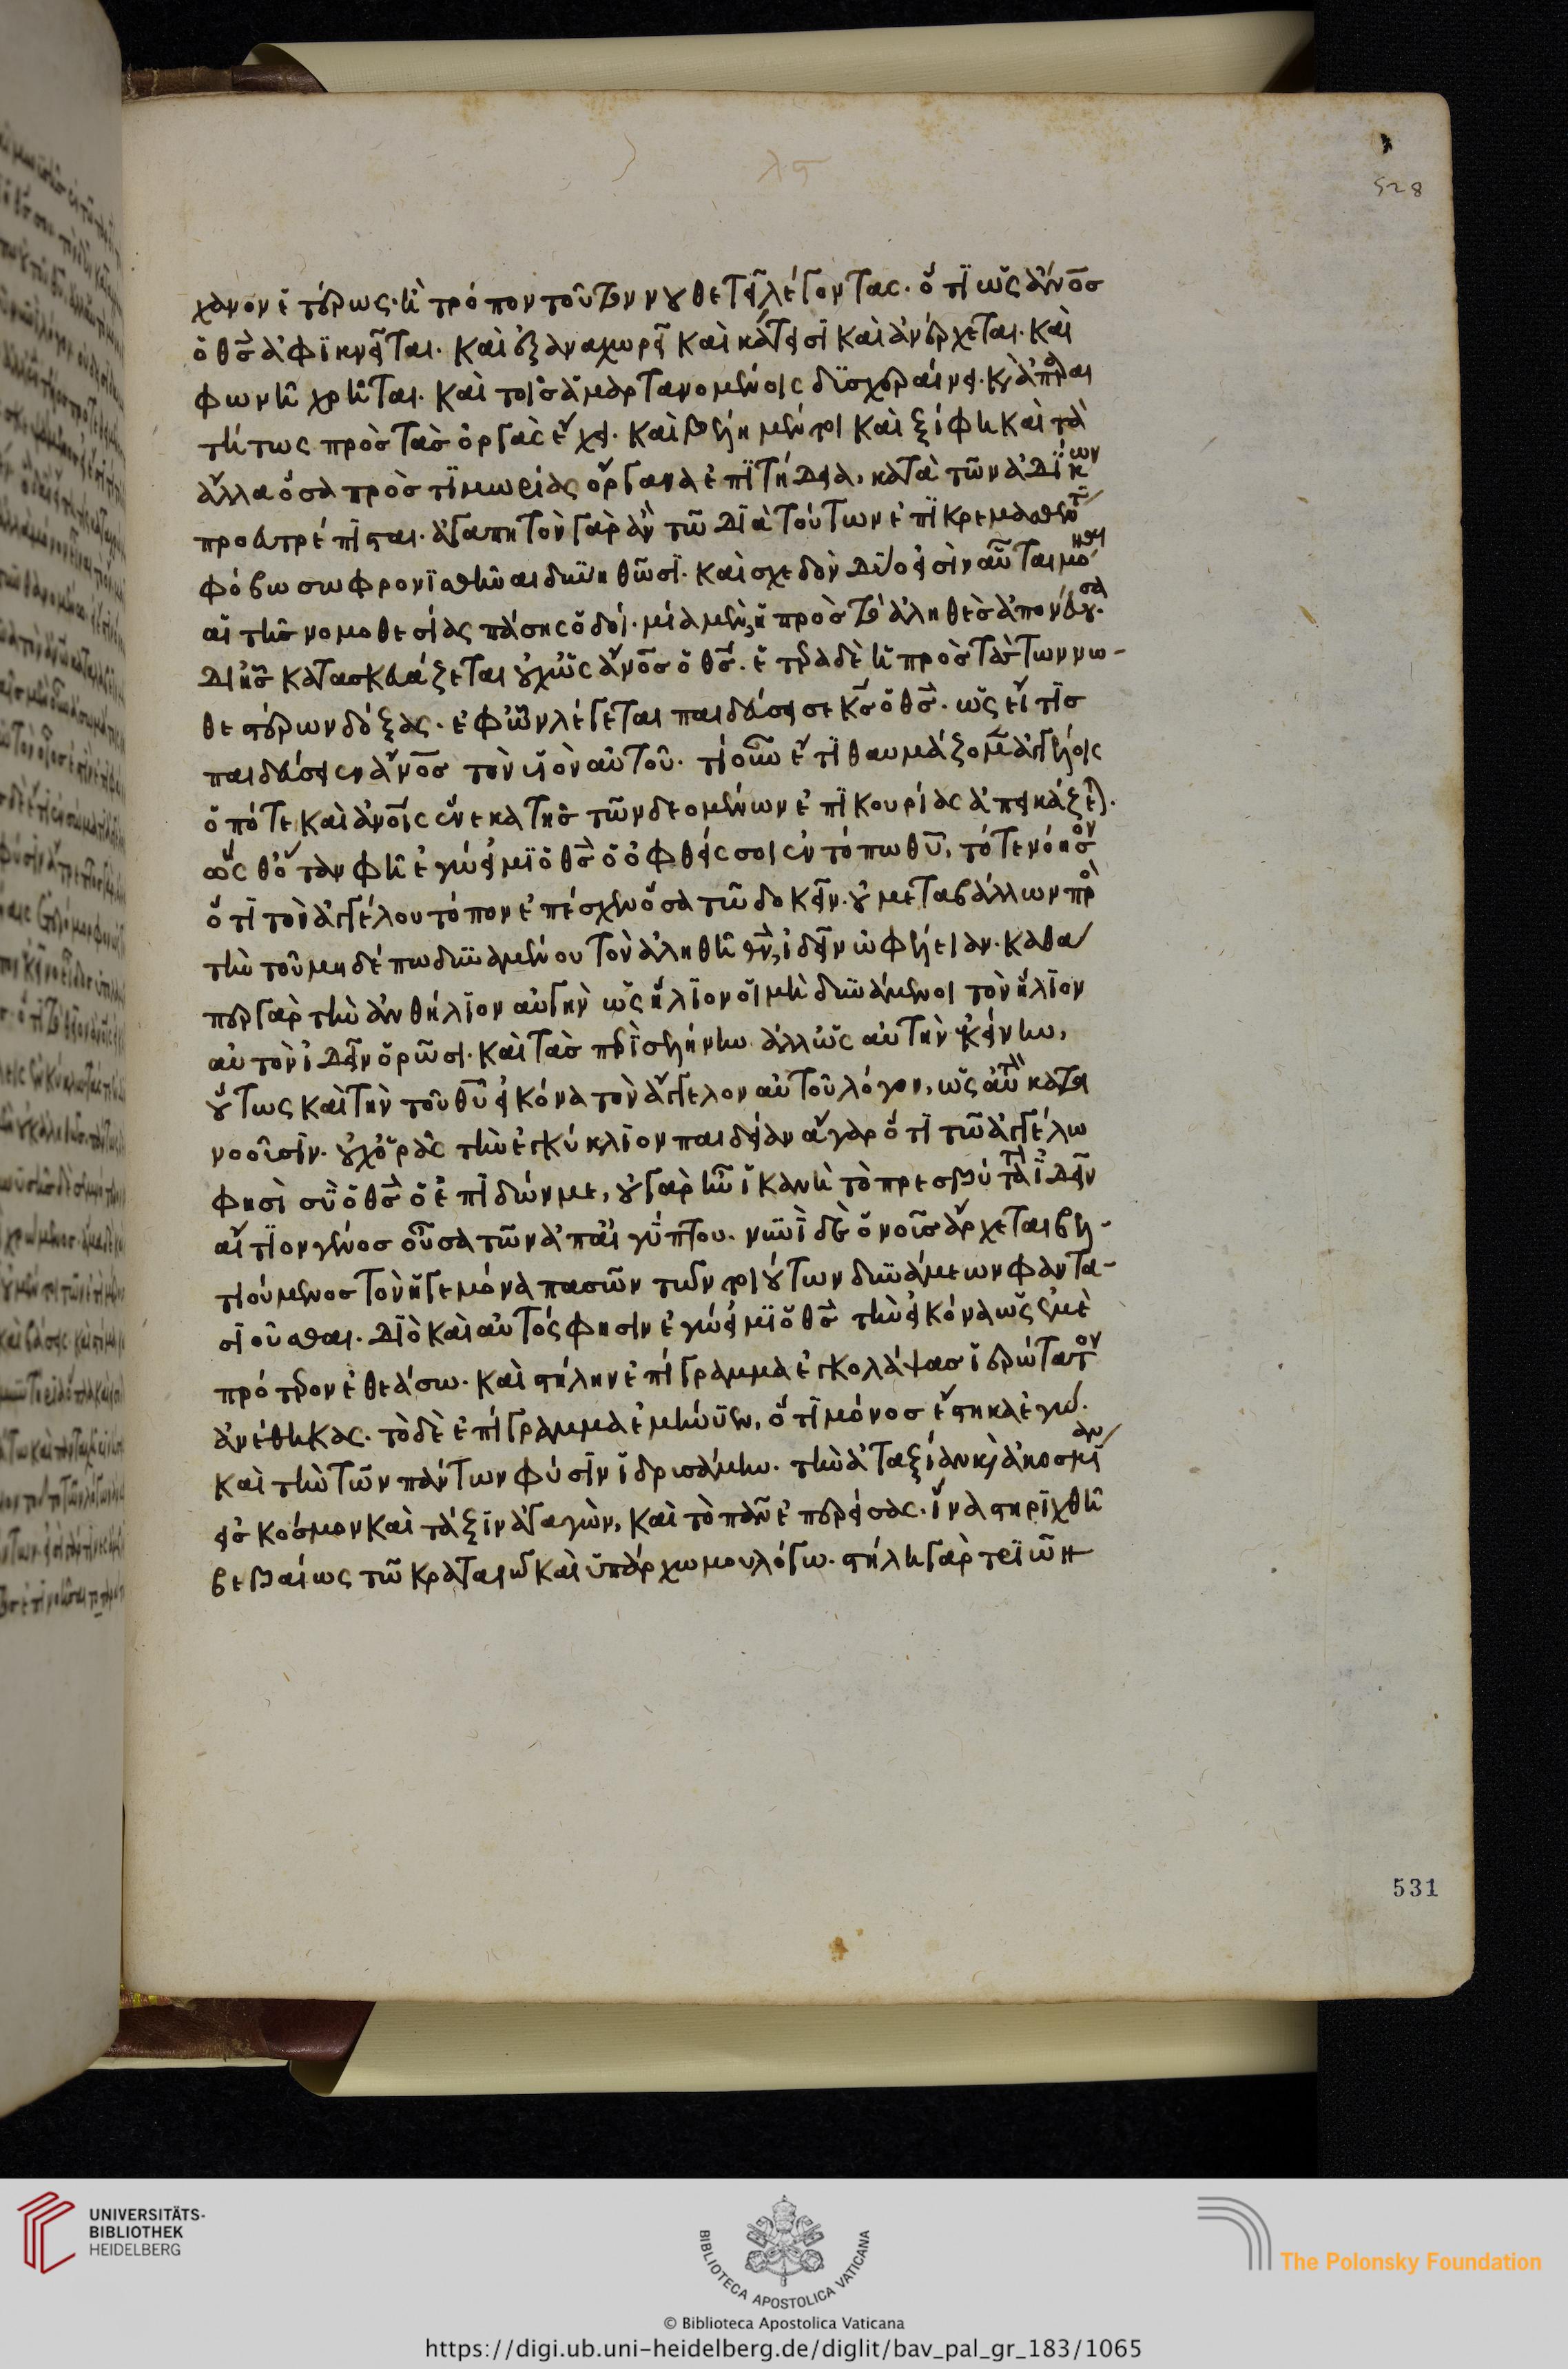 χανον ἑτέρως· ἢ τρόπον τοῦτον νουθετεῖ λέγοντας· ὅτι ὡς ἄνος
ὁ θς ἀφικνεῖται. καὶ ἐξαναχωρεῖ καὶ κάτεισι καὶ ἀνέρχεται. καὶ
φωνῆ χρῆται. καὶ τοῖς ἁμαρτανομένοις δϊσχεραίνει. κ ἀπαραι
τήτως πρὸς τὰς ὀργὰς ἔχει. καὶ βέλη μέντοι καὶ ξίφη καὶ τὰ
ἄλλα ὅσα πρὸς τϊμωρίας ὄργανα ἐπιτήδεια, κατὰ τῶν ἀδίκων
προευτρέπισται. ἀγαπητὸν γὰρ ἂν τῶ διὰ τούτων ἐπικρεμασθέντι
φόβω σωφρονισθῆναι δυνηθῶσι. καὶ σχεδὸν δύο εἰσὶν αὗται μόναι
αἱ τῆς νομοθεσίας πάσης ὁδοί. μία μὲν, ἡ πρὸς τὸ ἀληθὲς ἀπονεύουσα.
δι ἧς κατασκευάζεται οὐχ ὡς ἄνος ὁ θς. ἑτέρα δὲ ἡ πρὸς τὰς των νω-
θεστέρων δόξας. ἐφ ὧν λέγεται παιδεύσει σε κς ὁ θς. ὡς εἴ τις
παιδεύσειεν ἄνος τὸν υἱὸν αὐτοῦ. τί οὖν ἔτι θαυμάζομεν ἀγγέλοις
ὁπότε καὶ ἀνοις ἕνεκα τῆς τῶν δεομένων ἐπικουρίας ἀπεικάζεται.
ὥς θ ὅταν φῆ ἐγώ εἰμι ὁ θς ὁ ὀφθείς σοι ἐν τόπω θυ, τότε νόησον
ὅτι τὸν ἀγγέλου τόπον ἐπέσχεν ὅσα τῶ δοκεῖν. οὐ μεταβάλλων πρὸς
τὴν τοῦ μηδέπω δυναμένου τὸν ἀληθῆ θν, ἰδεῖν ὠφέλειαν. καθα
περ γὰρ τὴν ἀνθήλιον αὐγὴν ὡς ἥλιον οἱ μὴ δυνάμενοι τὸν ἥλιον
αὐτὸν ἰδεῖν ὁρῶσι. καὶ τὰς περὶ σελήνην ἀλλ ὡς αὐτὴν ἐκείνην,
οὕτως καὶ τὴν τοῦ θυ εἰκόνα τὸν ἄγγελον αὐτοῦ λόγον, ὡς αὐτὸν κατα
νοοῦσιν. οὐχ ὁρᾶς τὴν ἐγκύκλιον παιδείαν ἄγαρ ὅτι τῶ ἀγγέλω
φησὶ σὺ ὁ θς ὁ ἐπιδών με, οὐ γὰρ ἦν ἱκανὴ τὸ πρεσβύτατον ἰδεῖν
αἴτιον γένος οὖσα τῶν ἀπ αἰγύπτου. νυνὶ δὲ ὁ νοῦς ἄρχεται βελ-
τιούμενος τὸν ἡγεμόνα πασῶν των τοιούτων δυνάμεων φαντα-
σιοῦσθαι. διὸ καὶ αὐτός φησιν ἐγώ εἰμι ὁ θς τὴν εἰκόνα ὡς ἐμὲ
πρότερον ἐθεάσω. καὶ στήλην ἐπίγραμμα ἐγκολάψας ἱερώτατον
ἀνέθηκας. τὸ δὲ ἐπίγραμμα ἐμήνυεν, ὅτι μόνος ἕστηκα ἐγώ.
καὶ τὴν τῶν πάντων φύσιν ἱδρυσάμην. τὴν ἀταξίαν κ ἀκοσμίαν
εἰς κόσμον καὶ τάξιν ἀγαγών, καὶ τὸ πᾶν ἐπερείσας. ἵνα στηριχθῆ
βεβαίως τῶ κραταιῶ καὶ ὑπάρχω μου λόγω. στήλη γὰρ τριῶν
528
531
UNIVERSITÄTS-
BIBLIOTHEK
HEIDELBERG
BIBLIOTECA APOSTOLICA VATICANA
The Polonsky Foundation
© Biblioteca Apostolica Vaticana
https://digi.ub.uni-heidelberg.de/diglit/bav_pal_gr_183/1065